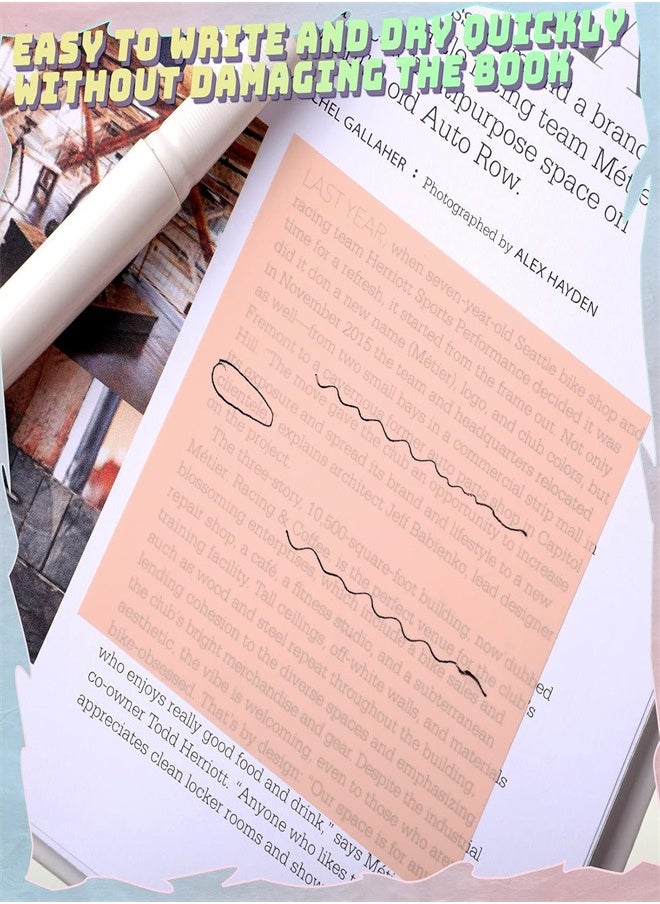 EASY TO WRITE AND DRY QUICKLY
WITHOUT DAMAGING THE BOOK
d a brand
racing team Métie
ltipurpose space on
old Auto Row.
CHEL GALLAHER : Photographed by ALEX HAYDEN
LAST YEAR, when seven-year-old Seattle bike shop and
racing team Herriott Sports Performance decided it was
time for a refresh, it started from the frame out. Not only
did it don a new name (Métier), logo, and club colors, but
in November 2015 the team and headquarters relocated
as well—from two small bays in a commercial strip mall in
Fremont to a cavernous former auto parts shop in Capitol
Hill. "The move gave the club an opportunity to increase
its exposure and spread its brand and lifestyle to a new
clientele," explains architect Jeff Babienko, lead designer
on the project.
The three-story, 10,500-square-foot building, now dubbed
Métier: Racing & Coffee, is the perfect venue for the club's
blossoming enterprises, which include a bike sales and
repair shop, a café, a fitness studio, and a subterranean
training facility. Tall ceilings, off-white walls, and materials
such as wood and steel repeat throughout the building,
lending cohesion to the diverse spaces and emphasizing
the club's bright merchandise and gear. Despite the industrial
aesthetic, the vibe is welcoming, even to those who are
bike-obsessed. That's by design: "Our space is for any
who enjoys really good food and drink," says Méti
co-owner Todd Herriott. "Anyone who likes t
appreciates clean locker rooms and show